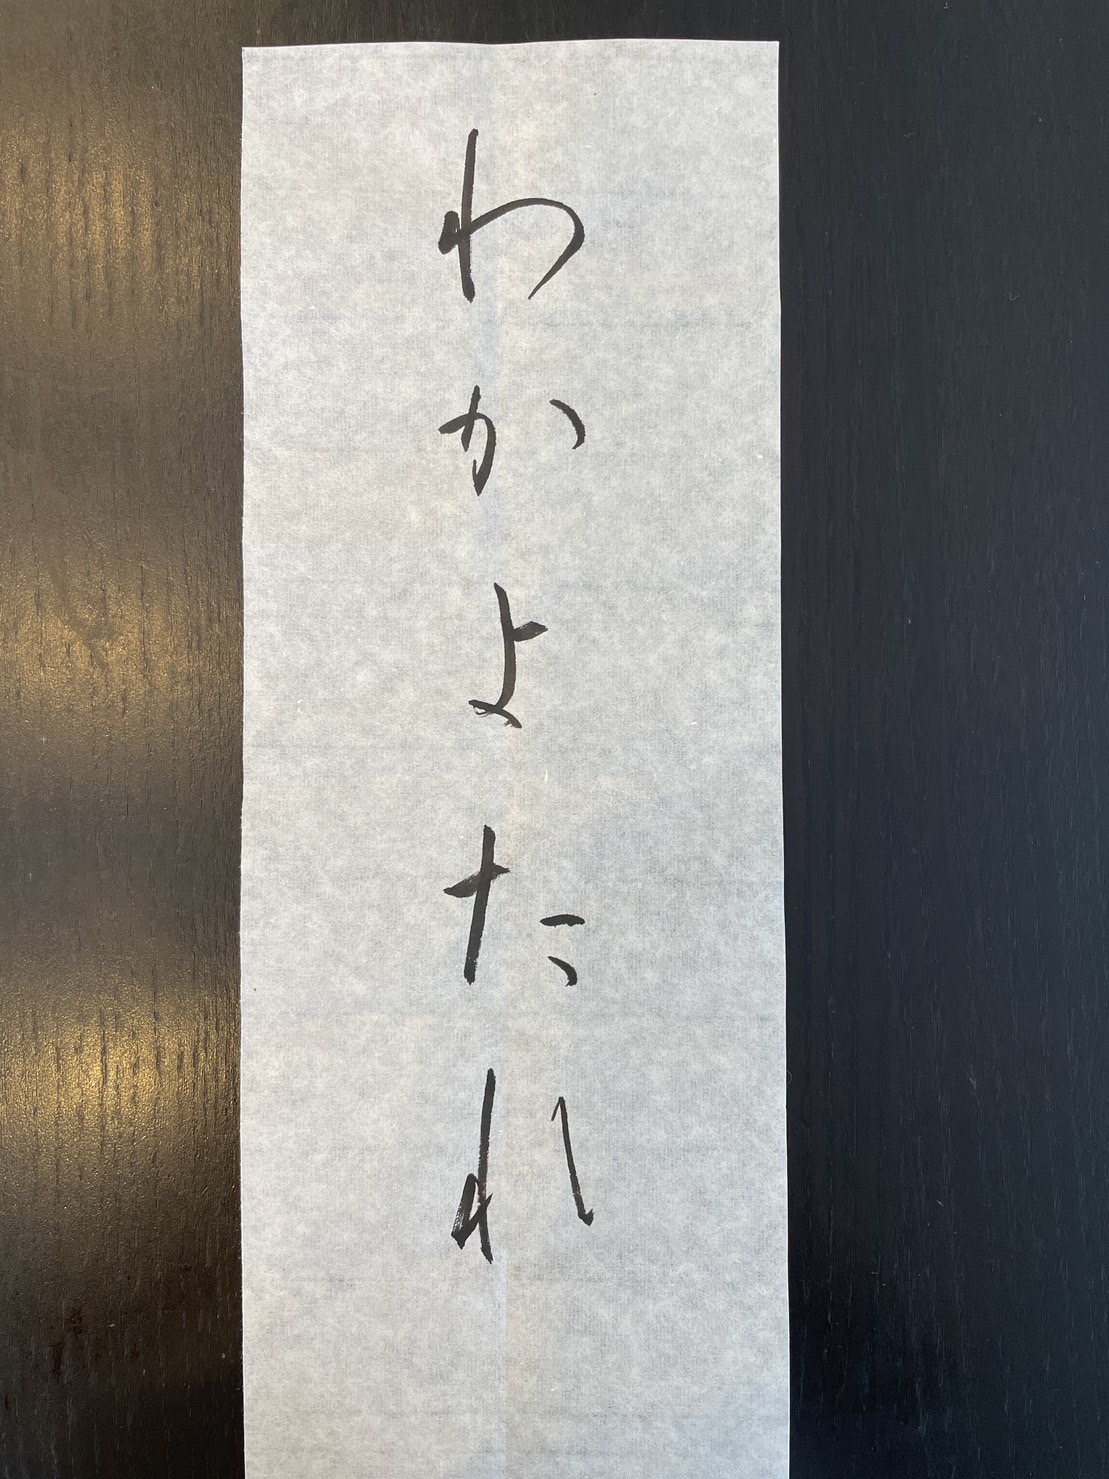 わかよたれ